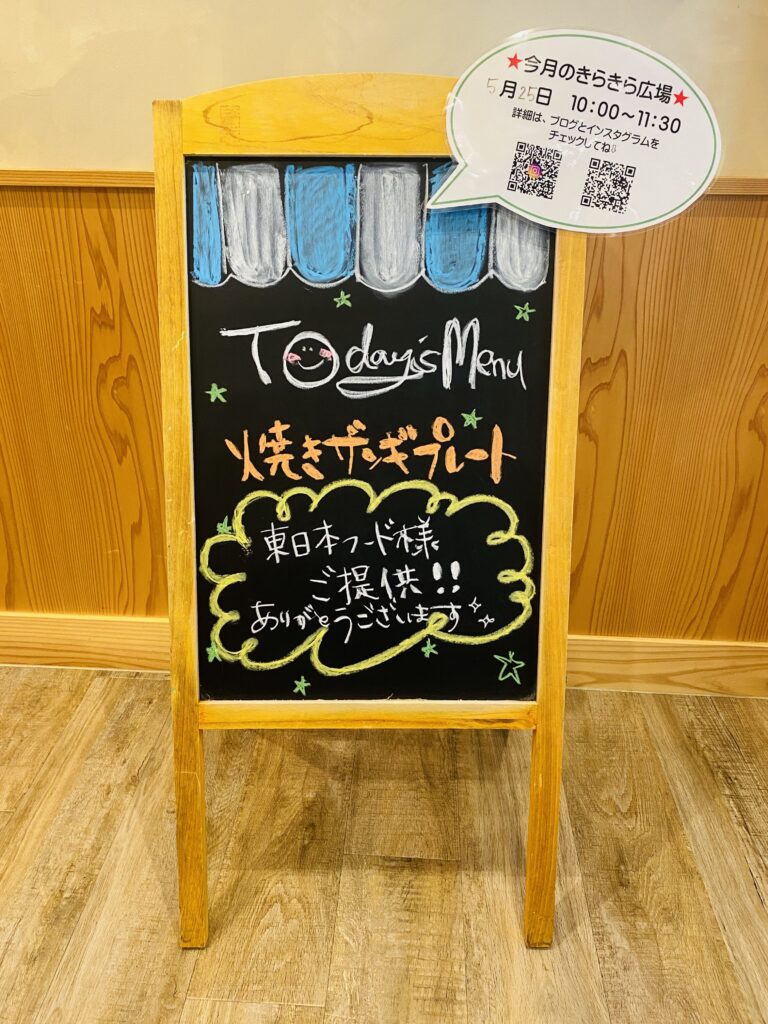 ★今月のきらきら広場★
5月25日 10:00～11:30
詳細は、ブログとインスタグラムを
チェックしてね!
Today's Menu
焼きザンギプレート
東日本フード様
ご提供!!
ありがとうございます